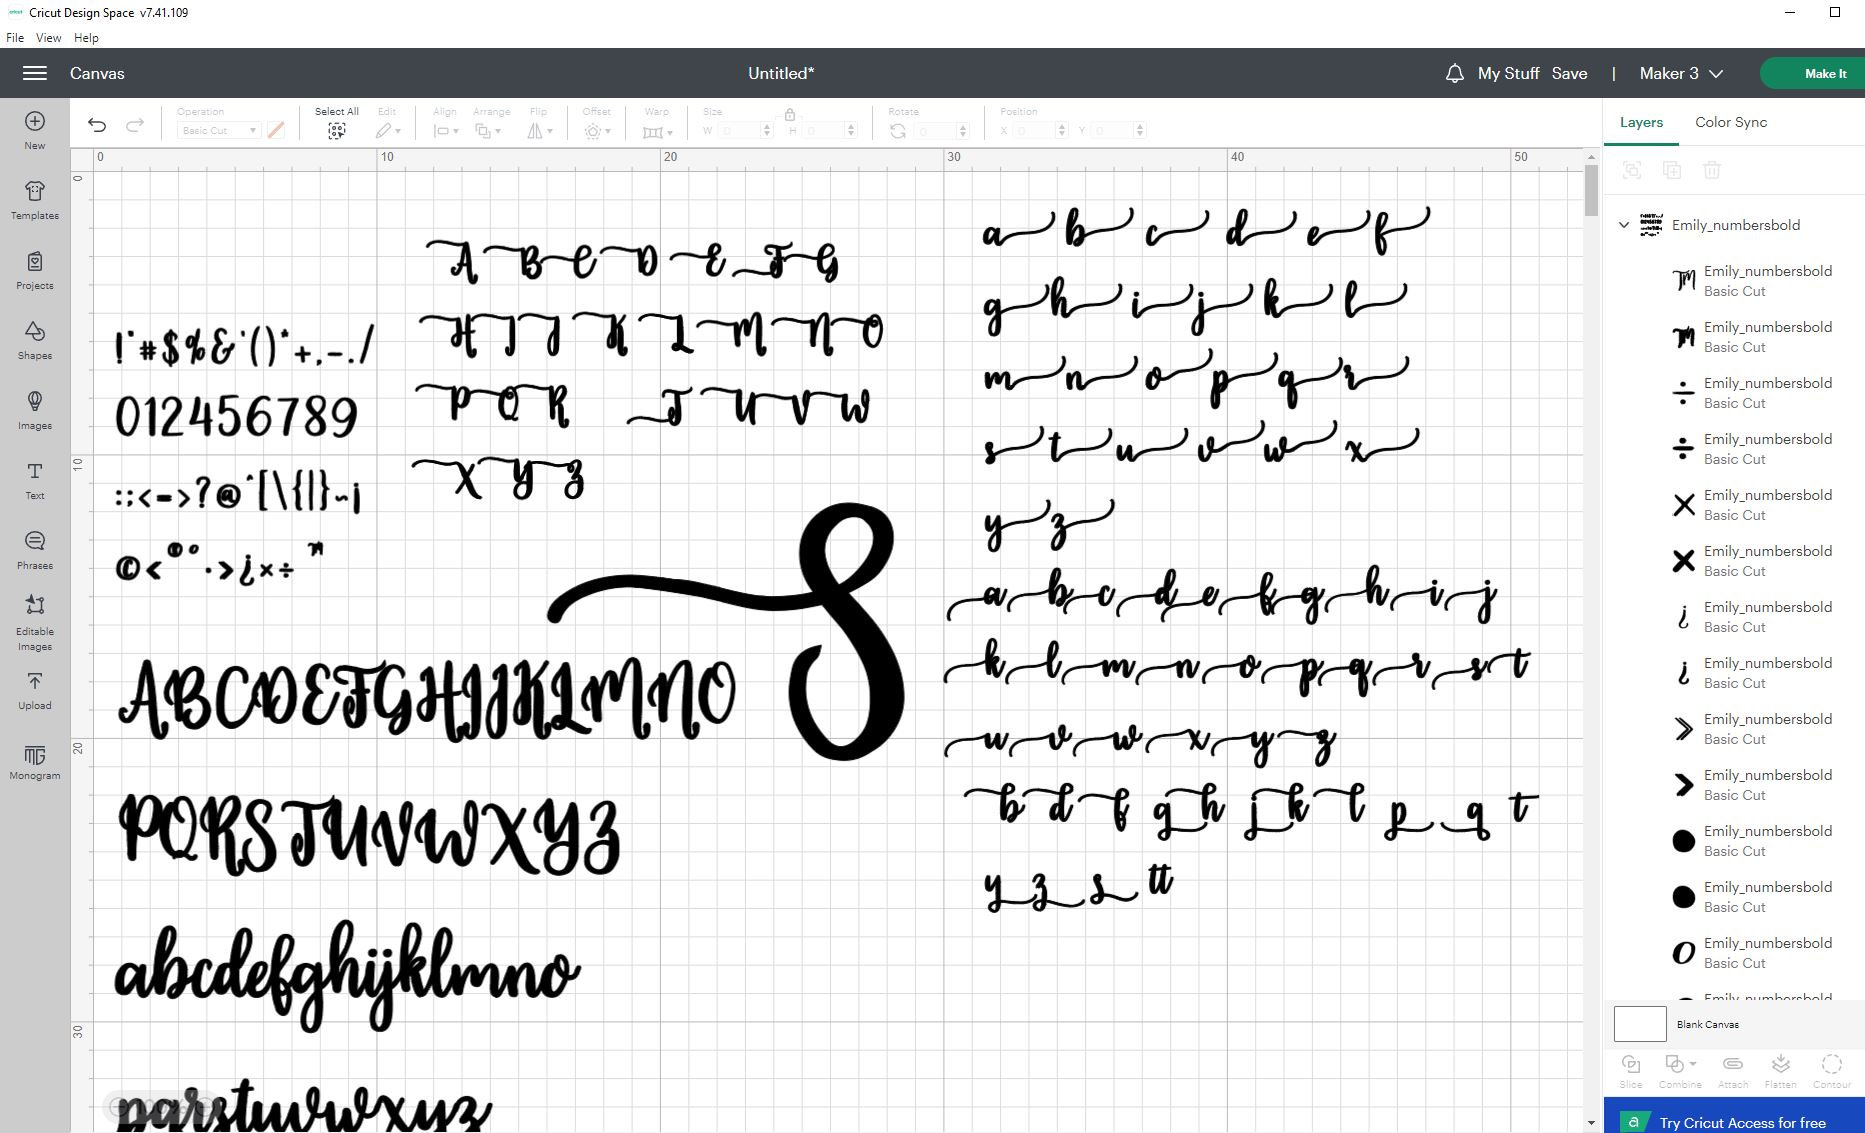 cricut Cricut Design Space v7.41.109
File View Help
Canvas Untitled* My Stuff Save | Maker 3 Make It
Operation Select All Edit Align Arrange Flip Offset Warp Size Rotate Position
Basic Cut W 0 H 0 0 X 0 Y 0
Layers Color Sync
New
Templates
Projects
Shapes
Images
Text
Phrases
Editable
Images
Upload
Monogram
0 10 20 30 40 50
0
10
20
30
A B C D E F G
H I J K L M N O
P Q R T U V W
X Y Z
S
!"#$%&'()*+,-./
012456789
:;<=>?@^[\{|}~¡
©<®°·>¿×÷™
ABCDEFGHIJKLMNO
PQRSTUVWXYZ
abcdefghijklmno
pqrstuvwxyz
100%
a b c d e f
g h i j k l
m n o p q r
s t u v w x
y z
a b c d e f g h i j
k l m n o p q r s t
u v w x y z
b d f g h j k l p q t
y z s tt
Emily_numbersbold
TM Emily_numbersbold
Basic Cut
TM Emily_numbersbold
Basic Cut
÷ Emily_numbersbold
Basic Cut
÷ Emily_numbersbold
Basic Cut
× Emily_numbersbold
Basic Cut
× Emily_numbersbold
Basic Cut
¿ Emily_numbersbold
Basic Cut
¿ Emily_numbersbold
Basic Cut
» Emily_numbersbold
Basic Cut
> Emily_numbersbold
Basic Cut
Emily_numbersbold
Basic Cut
Emily_numbersbold
Basic Cut
O Emily_numbersbold
Basic Cut
Emily_numbersbold
Blank Canvas
Slice Combine Attach Flatten Contour
a Try Cricut Access for free